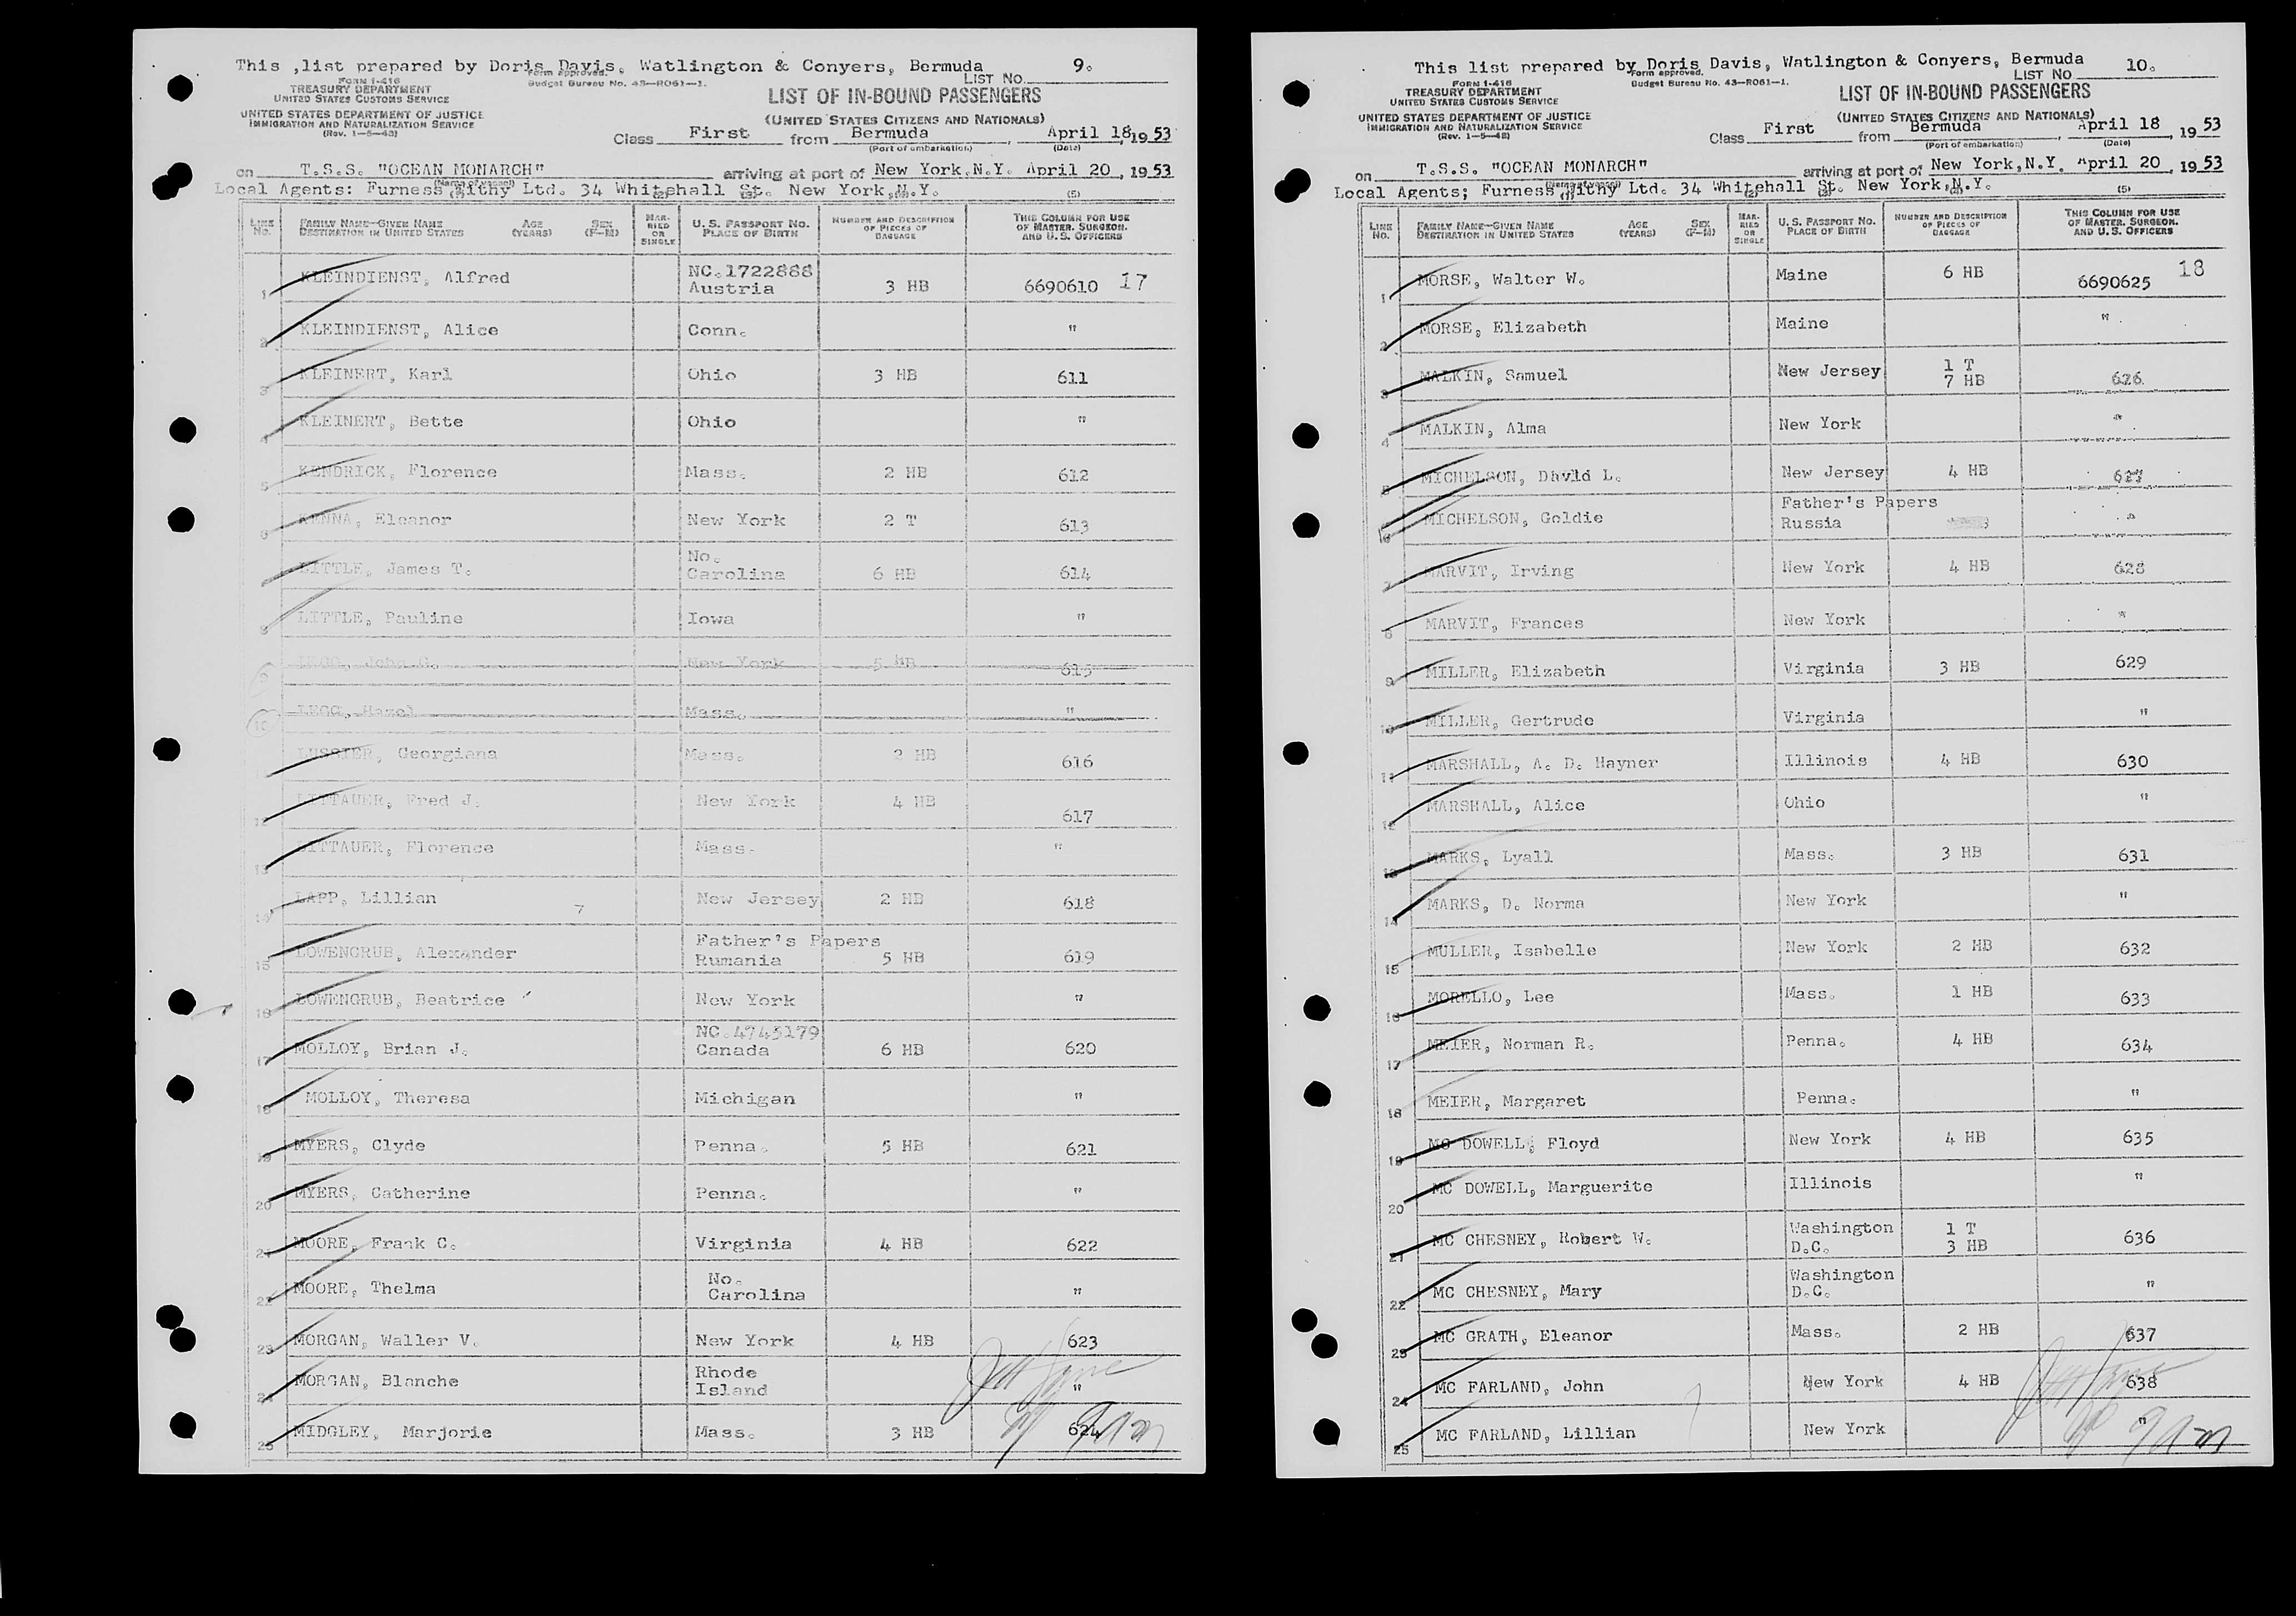 This ,list prepared by Doris Davis, Watlington & Conyers, Bermuda
Form approved.
Budget Bureau No. 43—R061—1.
LIST No. 9.
FORM I-416
TREASURY DEPARTMENT
UNITED STATES CUSTOMS SERVICE
UNITED STATES DEPARTMENT OF JUSTICE
IMMIGRATION AND NATURALIZATION SERVICE
(Rev. 1—5—48)
LIST OF IN-BOUND PASSENGERS
(UNITED STATES CITIZENS AND NATIONALS)
Class First from Bermuda, April 18, 1953
(Port of embarkation) (Date)
on T.S.S. "OCEAN MONARCH" arriving at port of New York,N.Y. April 20, 1953
(Name of vessel)
Local Agents: Furness Withy Ltd. 34 Whitehall St. New York,N.Y.
(1) (2) (3) (4) (5)
LINE No. FAMILY NAME—GIVEN NAME DESTINATION IN UNITED STATES AGE (YEARS) SEX (F—M) MARRIED OR SINGLE U. S. PASSPORT No. PLACE OF BIRTH NUMBER AND DESCRIPTION OF PIECES OF BAGGAGE THIS COLUMN FOR USE OF MASTER, SURGEON, AND U. S. OFFICERS
1 KLEINDIENST, Alfred NC.1722888 Austria 3 HB 6690610 17
2 KLEINDIENST, Alice Conn. "
3 KLEINERT, Karl Ohio 3 HB 611
4 KLEINERT, Bette Ohio "
5 KENDRICK, Florence Mass. 2 HB 612
6 KENNA, Eleanor New York 2 T 613
LITTLE, James T. No. Carolina 6 HB 614
8 LITTLE, Pauline Iowa "
9 LEGG, John G. New York 5 HB 615
10 LEGG, Hazel Mass. "
LUSSIER, Georgiana Mass. 2 HB 616
12 LITTAUER, Fred J. New York 4 HB 617
13 LITTAUER, Florence Mass. "
14 LAPP, Lillian New Jersey 2 HB 618
15 LOWENGRUB, Alexander Father's Papers Rumania 5 HB 619
16 LOWENGRUB, Beatrice New York "
17 MOLLOY, Brian J. NC.4745179 Canada 6 HB 620
18 MOLLOY, Theresa Michigan "
19 MYERS, Clyde Penna. 5 HB 621
20 MYERS, Catherine Penna. "
21 MOORE, Frank C. Virginia 4 HB 622
22 MOORE, Thelma No. Carolina "
23 MORGAN, Waller V. New York 4 HB 623
24 MORGAN, Blanche Rhode Island "
25 MIDGLEY, Marjorie Mass. 3 HB 624
This list prepared by Doris Davis, Watlington & Conyers, Bermuda
Form approved.
Budget Bureau No. 43—R061—1.
LIST No. 10.
FORM I-416
TREASURY DEPARTMENT
UNITED STATES CUSTOMS SERVICE
UNITED STATES DEPARTMENT OF JUSTICE
IMMIGRATION AND NATURALIZATION SERVICE
(Rev. 1—5—48)
LIST OF IN-BOUND PASSENGERS
(UNITED STATES CITIZENS AND NATIONALS)
Class First from Bermuda, April 18, 1953
(Port of embarkation) (Date)
on T.S.S. "OCEAN MONARCH" arriving at port of New York,N.Y. April 20, 1953
(Name of vessel)
Local Agents; Furness Withy Ltd. 34 Whitehall St. New York,N.Y.
(1) (2) (3) (4) (5)
LINE No. FAMILY NAME—GIVEN NAME DESTINATION IN UNITED STATES AGE (YEARS) SEX (F—M) MARRIED OR SINGLE U. S. PASSPORT No. PLACE OF BIRTH NUMBER AND DESCRIPTION OF PIECES OF BAGGAGE THIS COLUMN FOR USE OF MASTER, SURGEON, AND U. S. OFFICERS
1 MORSE, Walter W. Maine 6 HB 6690625 18
2 MORSE, Elizabeth Maine "
3 MALKIN, Samuel New Jersey 1 T 7 HB 626
4 MALKIN, Alma New York "
5 MICHELSON, David L. New Jersey 4 HB 627
6 MICHELSON, Goldie Father's Papers Russia "
7 MARVIT, Irving New York 4 HB 628
8 MARVIT, Frances New York "
9 MILLER, Elizabeth Virginia 3 HB 629
10 MILLER, Gertrude Virginia "
11 MARSHALL, A. D. Hayner Illinois 4 HB 630
12 MARSHALL, Alice Ohio "
13 MARKS, Lyall Mass. 3 HB 631
14 MARKS, D. Norma New York "
15 MULLER, Isabelle New York 2 HB 632
16 MORELLO, Lee Mass. 1 HB 633
17 MEIER, Norman R. Penna. 4 HB 634
18 MEIER, Margaret Penna. "
19 MC DOWELL, Floyd New York 4 HB 635
20 MC DOWELL, Marguerite Illinois "
21 MC CHESNEY, Robert W. Washington D.C. 1 T 3 HB 636
22 MC CHESNEY, Mary Washington D.C. "
23 MC GRATH, Eleanor Mass. 2 HB 637
24 MC FARLAND, John New York 4 HB 638
25 MC FARLAND, Lillian New York "